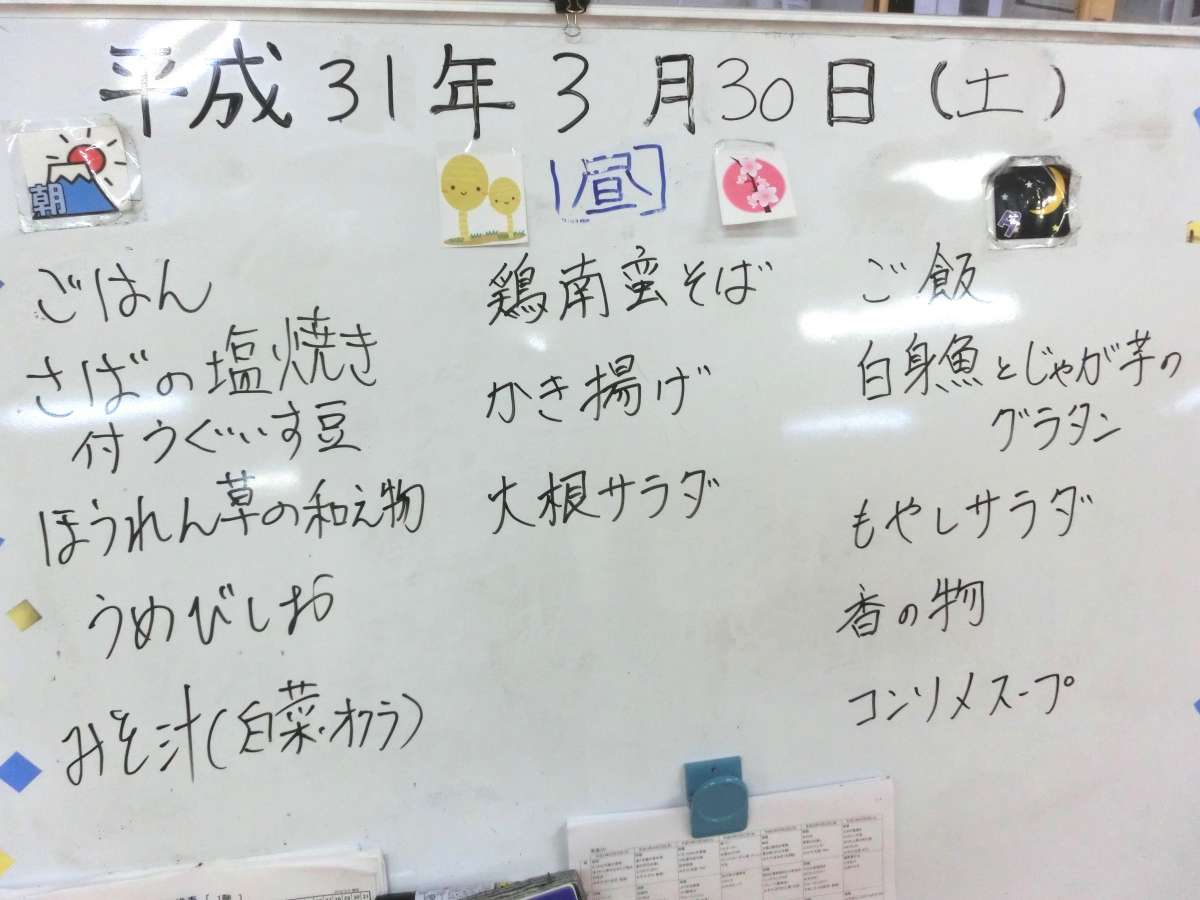 平成31年3月30日(土)
朝
昼
夕
ごはん
さばの塩焼き
付うぐいす豆
ほうれん草の和え物
うめびしお
みそ汁(白菜・オクラ)
鶏南蛮そば
かき揚げ
大根サラダ
ご飯
白身魚とじゃが芋の
グラタン
もやしサラダ
香の物
コンソメスープ